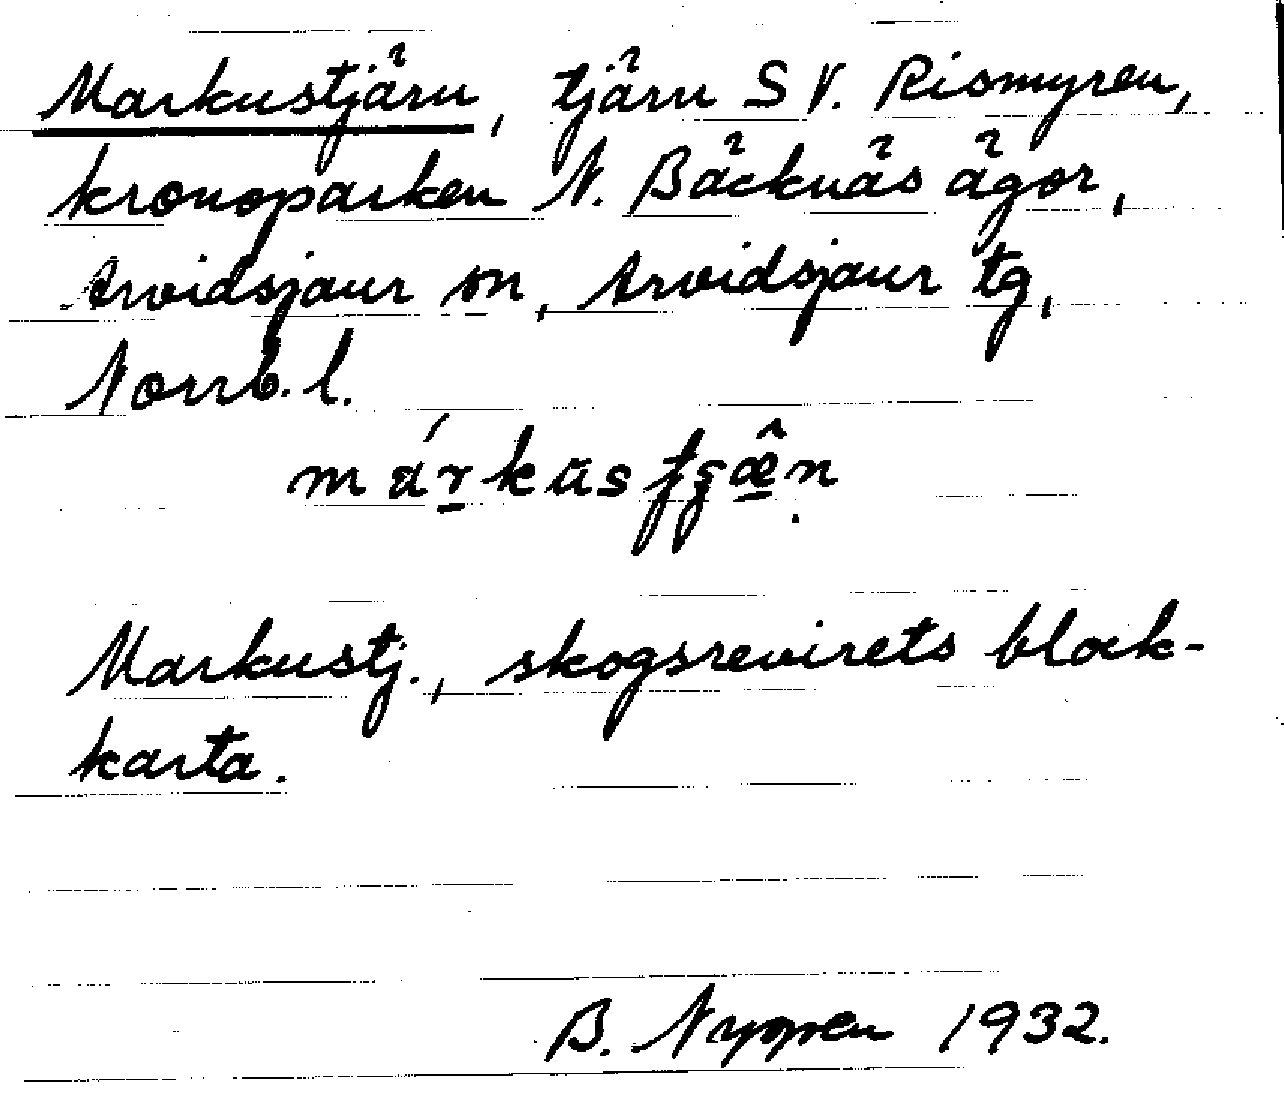 Markustjärn, tjärn SV. Rismyren,
kronoparken N. Bäcknäs ägor,
Arvidsjaur sn, Arvidsjaur tg,
Norrb. l.
Markustj., skogsrevirets block-
karta.
B. Nygren 1932.